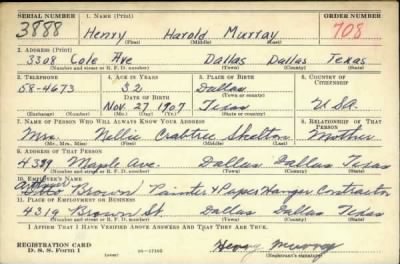 SERIAL NUMBER 1. NAME (Print) ORDER NUMBER
3888 Henry Harold Murray 708
(First) (Middle) (Last)
2. ADDRESS (Print)
3308 Cole Ave Dallas Dallas Texas
(Number and street or R. F. D. number) (Town) (County) (State)
3. TELEPHONE 4. AGE IN YEARS 5. PLACE OF BIRTH 6. COUNTRY OF CITIZENSHIP
58-4673 32 Dallas
DATE OF BIRTH (Town or county)
Nov. 27 1907 Texas U.S.A.
(Exchange) (Number) (Mo.) (Day) (Yr.) (State or country)
7. NAME OF PERSON WHO WILL ALWAYS KNOW YOUR ADDRESS 8. RELATIONSHIP OF THAT PERSON
Mrs. Nellie Crabtree Skelton Mother
(Mr., Mrs., Miss) (First) (Middle) (Last)
9. ADDRESS OF THAT PERSON
Maple Ave. Dallas Dallas Texas
(Number and street or R. F. D. number) (Town) (County) (State)
10. EMPLOYER'S NAME
Brown Painter & Paper Hanger Contractor
11. PLACE OF EMPLOYMENT OR BUSINESS
4319 Brown St. Dallas Dallas Texas
(Number and street or R. F. D. number) (Town) (County) (State)
I AFFIRM THAT I HAVE VERIFIED ABOVE ANSWERS AND THAT THEY ARE TRUE.
REGISTRATION CARD
D. S. S. Form 1 Henry Murray
(Registrant's signature)